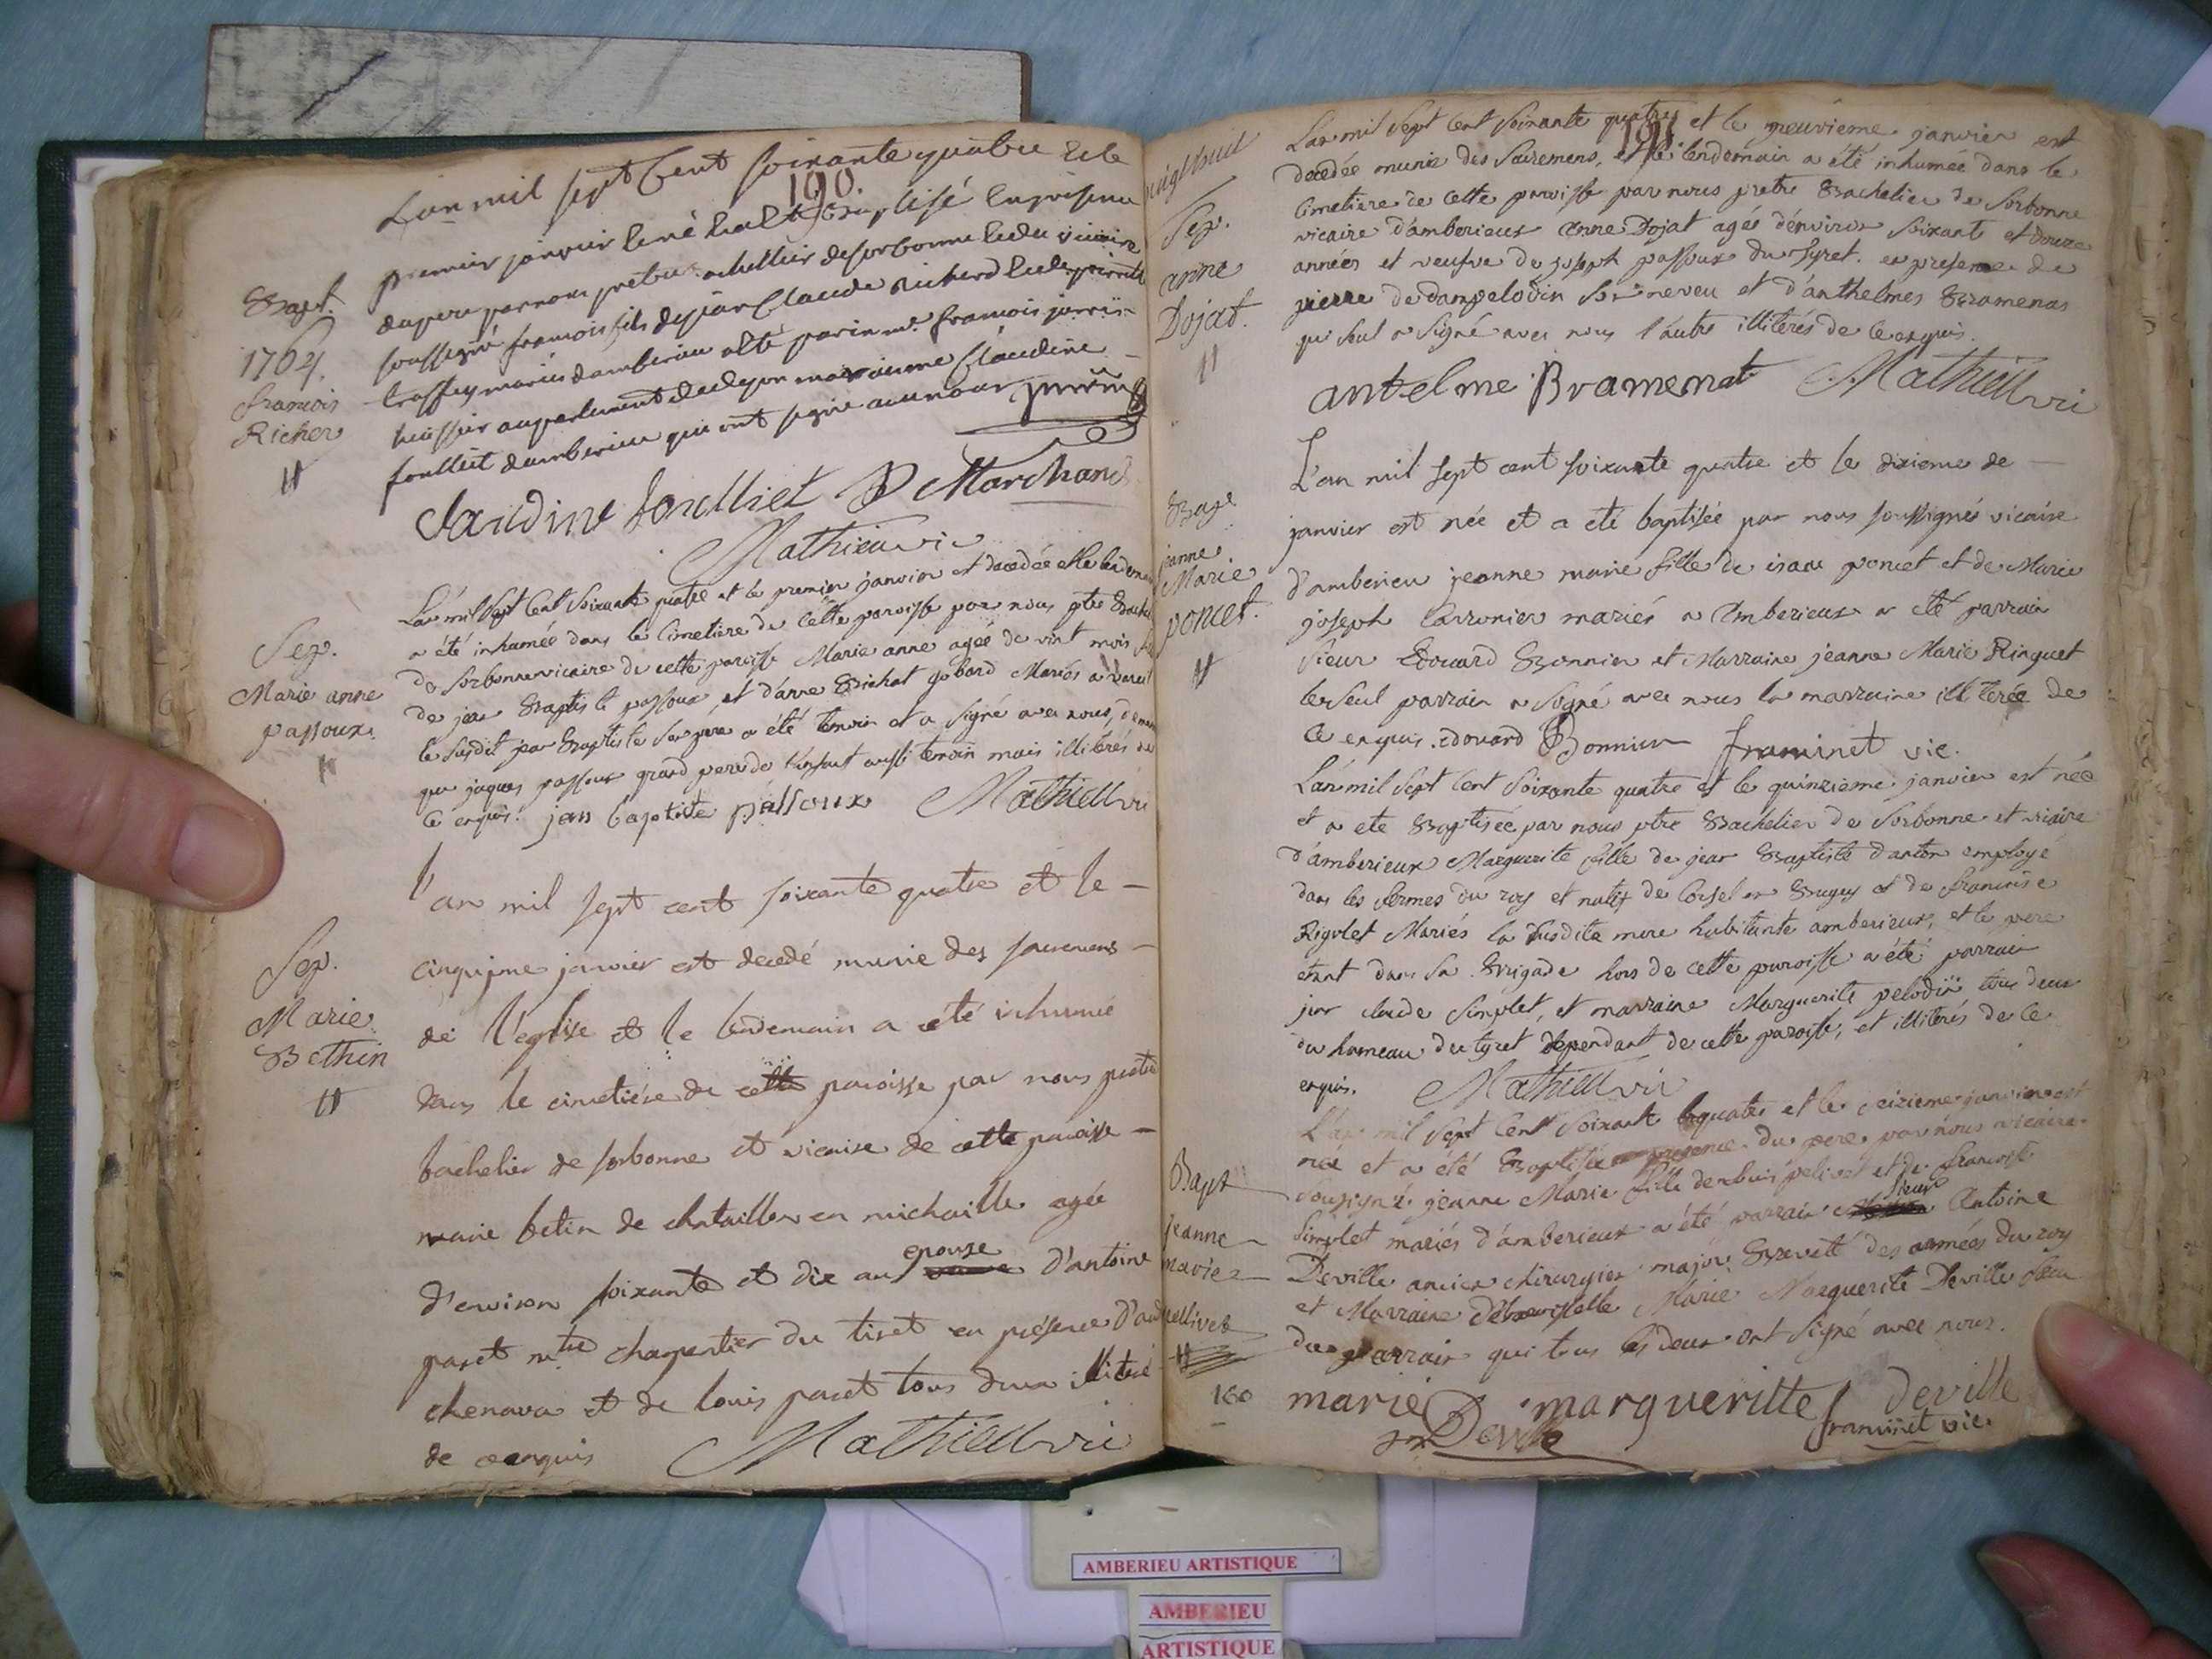 190.
L'an mil sept cent soixante quatre et le
premier janvier est né et a été baptisé en présence
du pere par nous pretre bachellier de sorbonne et vicaire
soussigné francois fils de jean claude richerd et de pierrette
mariés damberieu a été parin mr francois
huissier au parlement et marainne claudine
foulliet damberieu qui ont signé avec nous
Bapt.
1764.
francois
Richer
claudine foulliet Marchand
Mathieu vic
L'an mil sept cent soixante quatre et le premier janvier est decedée et le lendemain
a été inhumée dans le cimetiere de cette paroisse par nous ptre
de sorbonne vicaire de cette paroisse Marie anne agée de vint mois
de jean Baptiste passoux et d'anne Bichat gobard Mariés a
le susdit jean Baptiste son pere a été temoin et a signé avec nous,
que jaques passoux grand pere de l'enfant aussi temoin mais illiterés de
ce enquis. jean baptiste passoux Mathieu vic
Sep.
Marie anne
passoux.
L'an mil sept cent soixante quatre et le
cinquieme janvier est decedé munie des sacremens
de l'eglise et le lendemain a été inhumé
dans le cimetière de cette paroisse par nous pretre
bachelier de sorbonne et vicaire de cette paroisse
marie betin de chataillon en michaille agée
d'environ soixante et dix ans epouse d'antoine
paset mtre charpentier du tiret en présence d'
chenava et de louis paset tous deux illiteré
de ce enquis Mathieu vic
Sep.
Marie
Bethin
191
L'an mil sept cent soixante quatre et le neuvieme janvier est
decedée munie des sacremens, et le lendemain a été inhumée dans le
cimetiere de cette paroisse par nous pretre Bachelier de sorbonne
vicaire d'amberieux anne Dojat agée d'environ soixante et douze
années et veufve de joseph passoux du tyret. en presence de
pierre de dampelodin son neveu et d'anthelmes Bramenas
qui seul a signé avec nous l'autre illiterés de ce enquis.
antelme Bramenat Mathieu vic
Sep.
anne
Dojat.
L'an mil sept cent soixante quatre et le dixieme de
janvier est née et a été baptisée par nous soussignés vicaire
d'amberieu jeanne marie fille de isaac poncet et de Marie
joseph Carronier mariés a Amberieux a été parrain
sieur Edouard Bonnier et Marraine jeanne Marie Ringuet
le seul parrain a signé avec nous la marraine illiterée de
ce enquis. edouard Bonnier framinet vic.
Bapt
jeanne
Marie
poncet.
L'an mil sept cent soixante quatre et le quinzieme janvier est née
et a eté Baptisée par nous ptre Bachelier de sorbonne et vicaire
d'amberieux Marguerite fille de jean Baptiste danton employé
dans les fermes du roy et natif de Corsel en Bugey et de francoise
Rigolet Mariés la susdite mere habitante amberieux, et le pere
etant dans sa Brigade hors de cette paroisse a été parrain
jean claude simplet, et marraine Marguerite pelodin tous deux
du hameau du tyret dependant de cette paroisse, et illiterés de ce
enquis. Mathieu vic
L'an mil sept cent soixante quatre et le seizieme janvier est
née et a été Baptisée en presence du pere par nous vicaire
sousigné jeanne Marie fille et de francoise
simplet mariés d'amberieux a été parrain sieur Antoine
Deville ancien chirurgien major Breveté des armées du roy
et Marraine demoiselle Marie Marguerite Deville
du parrain qui tous les deux ont signé avec nous.
Bapt
jeanne
marie
160
marie margueritte deville
Deville framinet vic.
AMBERIEU ARTISTIQUE
AMBERIEU
ARTISTIQUE